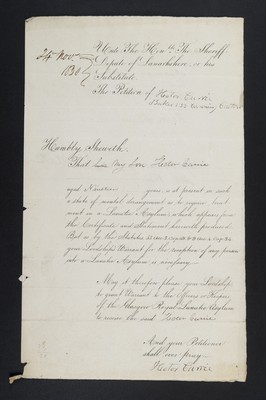 24 Nov.
1830
Unto The Honble. The Sheriff
Depute of Lanarkshire, or his
Substitute.
The Petition of Hector
Humbly Sheweth,
That my Son Hector
aged Nineteen years, is at present in such
a state of mental derangement as to require treat-
ment in a Lunatic Asylum, which appears from
the Certificates and Statement herewith produced
But as by the Statutes
your Lordship's Warrant for the reception of any person
into a Lunatic Asylum is necessary.
May it therefore please your Lordship
to grant Warrant to the Officers or Keepers
of the Glasgow Royal Lunatic Asylum
to receive the said Hector
And your Petitioner
shall ever pray.
Hector